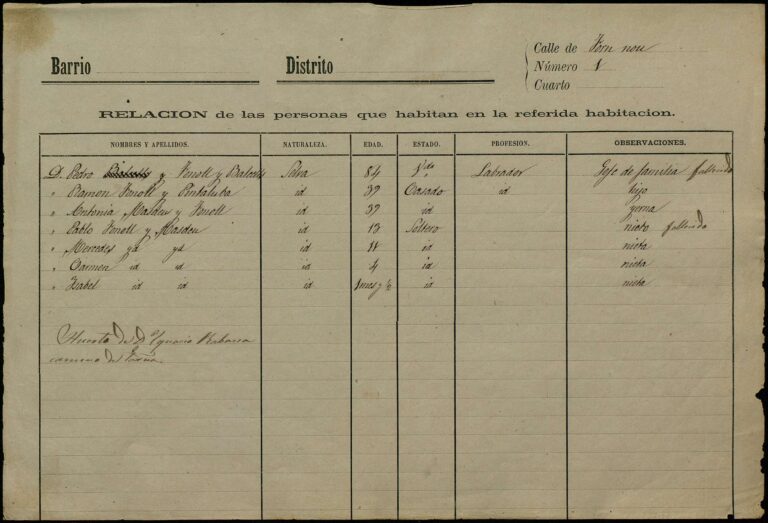 Calle de Forn nou
Barrio Distrito Número 1
Cuarto
RELACION de las personas que habitan en la referida habitacion.
NOMBRES Y APELLIDOS. NATURALEZA. EDAD. ESTADO. PROFESION. OBSERVACIONES.
D. Pedro y Fenoll y Balcells Selva 84 Vdo Labrador Gefe de familia fallecido
" Ramon Fenoll y id 39 Casado id hijo
" Antonia Masdeu y Fenoll id 39 id yerna
" Pablo Fenoll y Masdeu id 13 Soltero nieto fallecido
" Mercedes id id id 11 id nieta
" Carmen id id id 4 id nieta
" Isabel id id id 1 mes y ½ id nieta
Huerto de Dn Ignacio
camino de